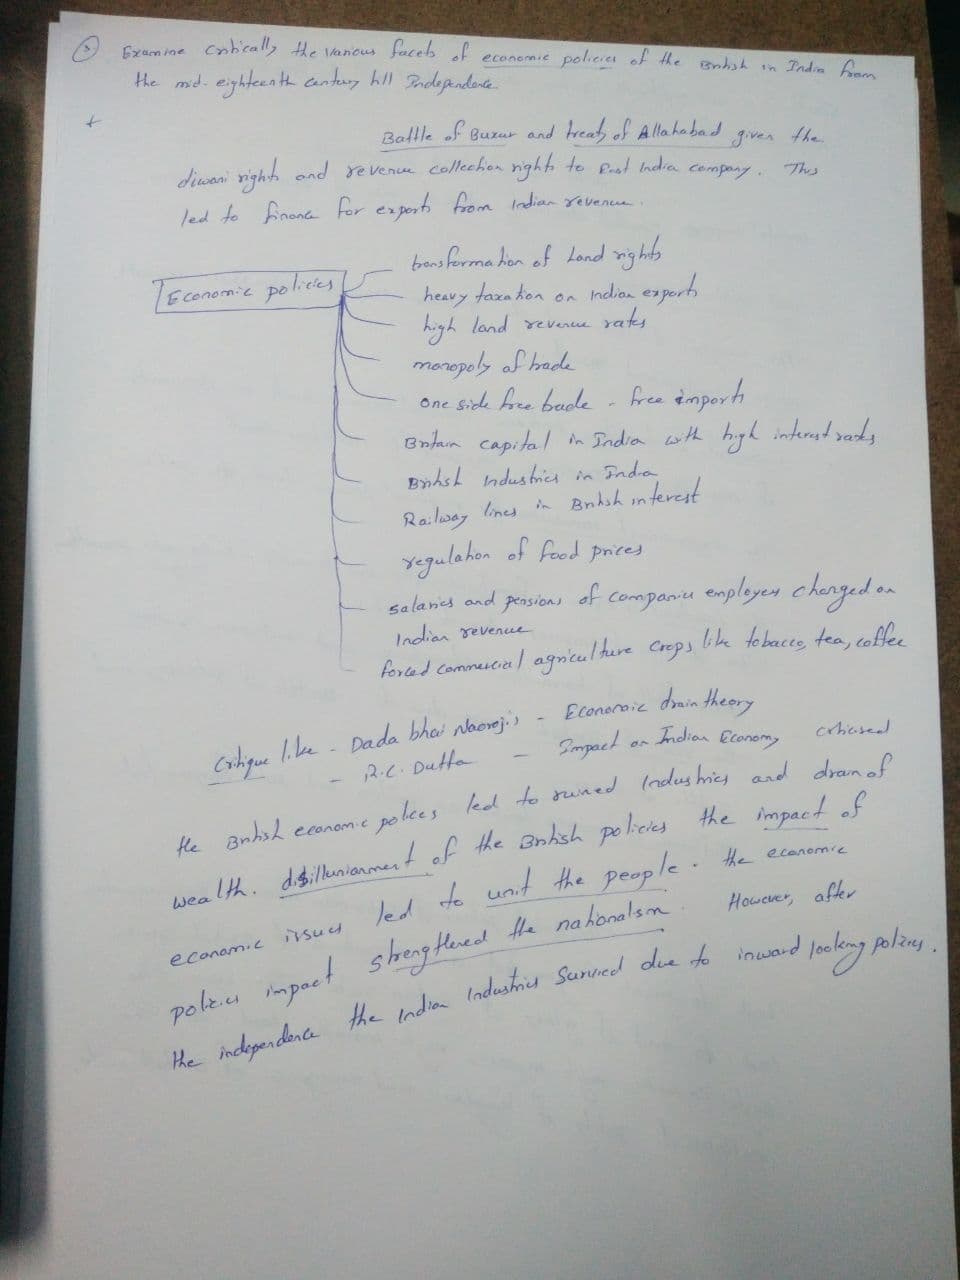 3. Examine critically the various facets of economic policies of the British in India from
the mid-eighteenth century till Independence.
Battle of Buxur and treaty of Allahabad given the
diwani rights and revenue collection rights to East India company. This
led to finance for exports from Indian revenue.
Economic policies
transformation of Land rights
heavy taxation on Indian exports
high land revenue rates
monopoly of trade
one side free trade - free imports
Britain capital in India with high interest rates
British Industries in India
Railway lines in British interest
regulation of food prices
salaries and pensions of companies employees charged on
Indian revenue
forced commercial agriculture crops like tobacco, tea, coffee
Critique like - Dada bhai Naoroji's - Economic drain theory
- R.C. Dutta - Impact on Indian Economy criticised
the British economic polices led to ruined Industries and drain of
wealth. disillunianment of the British policies the impact of
economic issues led to unit the people. the economic
policies impact strengthened the nationalism. However, after
the independence the Indian Industries Survied due to inward looking policies.